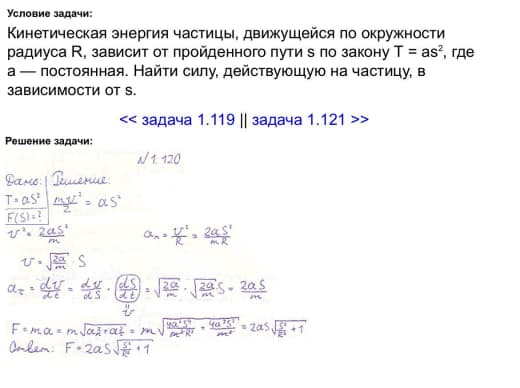 Условие задачи:
Кинетическая энергия частицы, движущейся по окружности
радиуса R, зависит от пройденного пути s по закону T = as², где
a — постоянная. Найти силу, действующую на частицу, в
зависимости от s.
<< задача 1.119 || задача 1.121 >>
Решение задачи:
N 1.120
Дано: | Решение:
T = aS² | mv²/2 = aS²
F(S) = ?
v² = 2aS²/m   aₙ = v²/R = 2aS²/mR
v = √(2a/m) · S
a_τ = dv/dt = dv/dS · (dS/dt) = √(2a/m) · √(2a/m) S = 2aS/m
v
F = ma = m√(aₙ² + a_τ²) = m√(4a²S⁴/m²R² + 4a²S²/m²) = 2aS√(S²/R² + 1)
Ответ: F = 2aS√(S²/R² + 1)